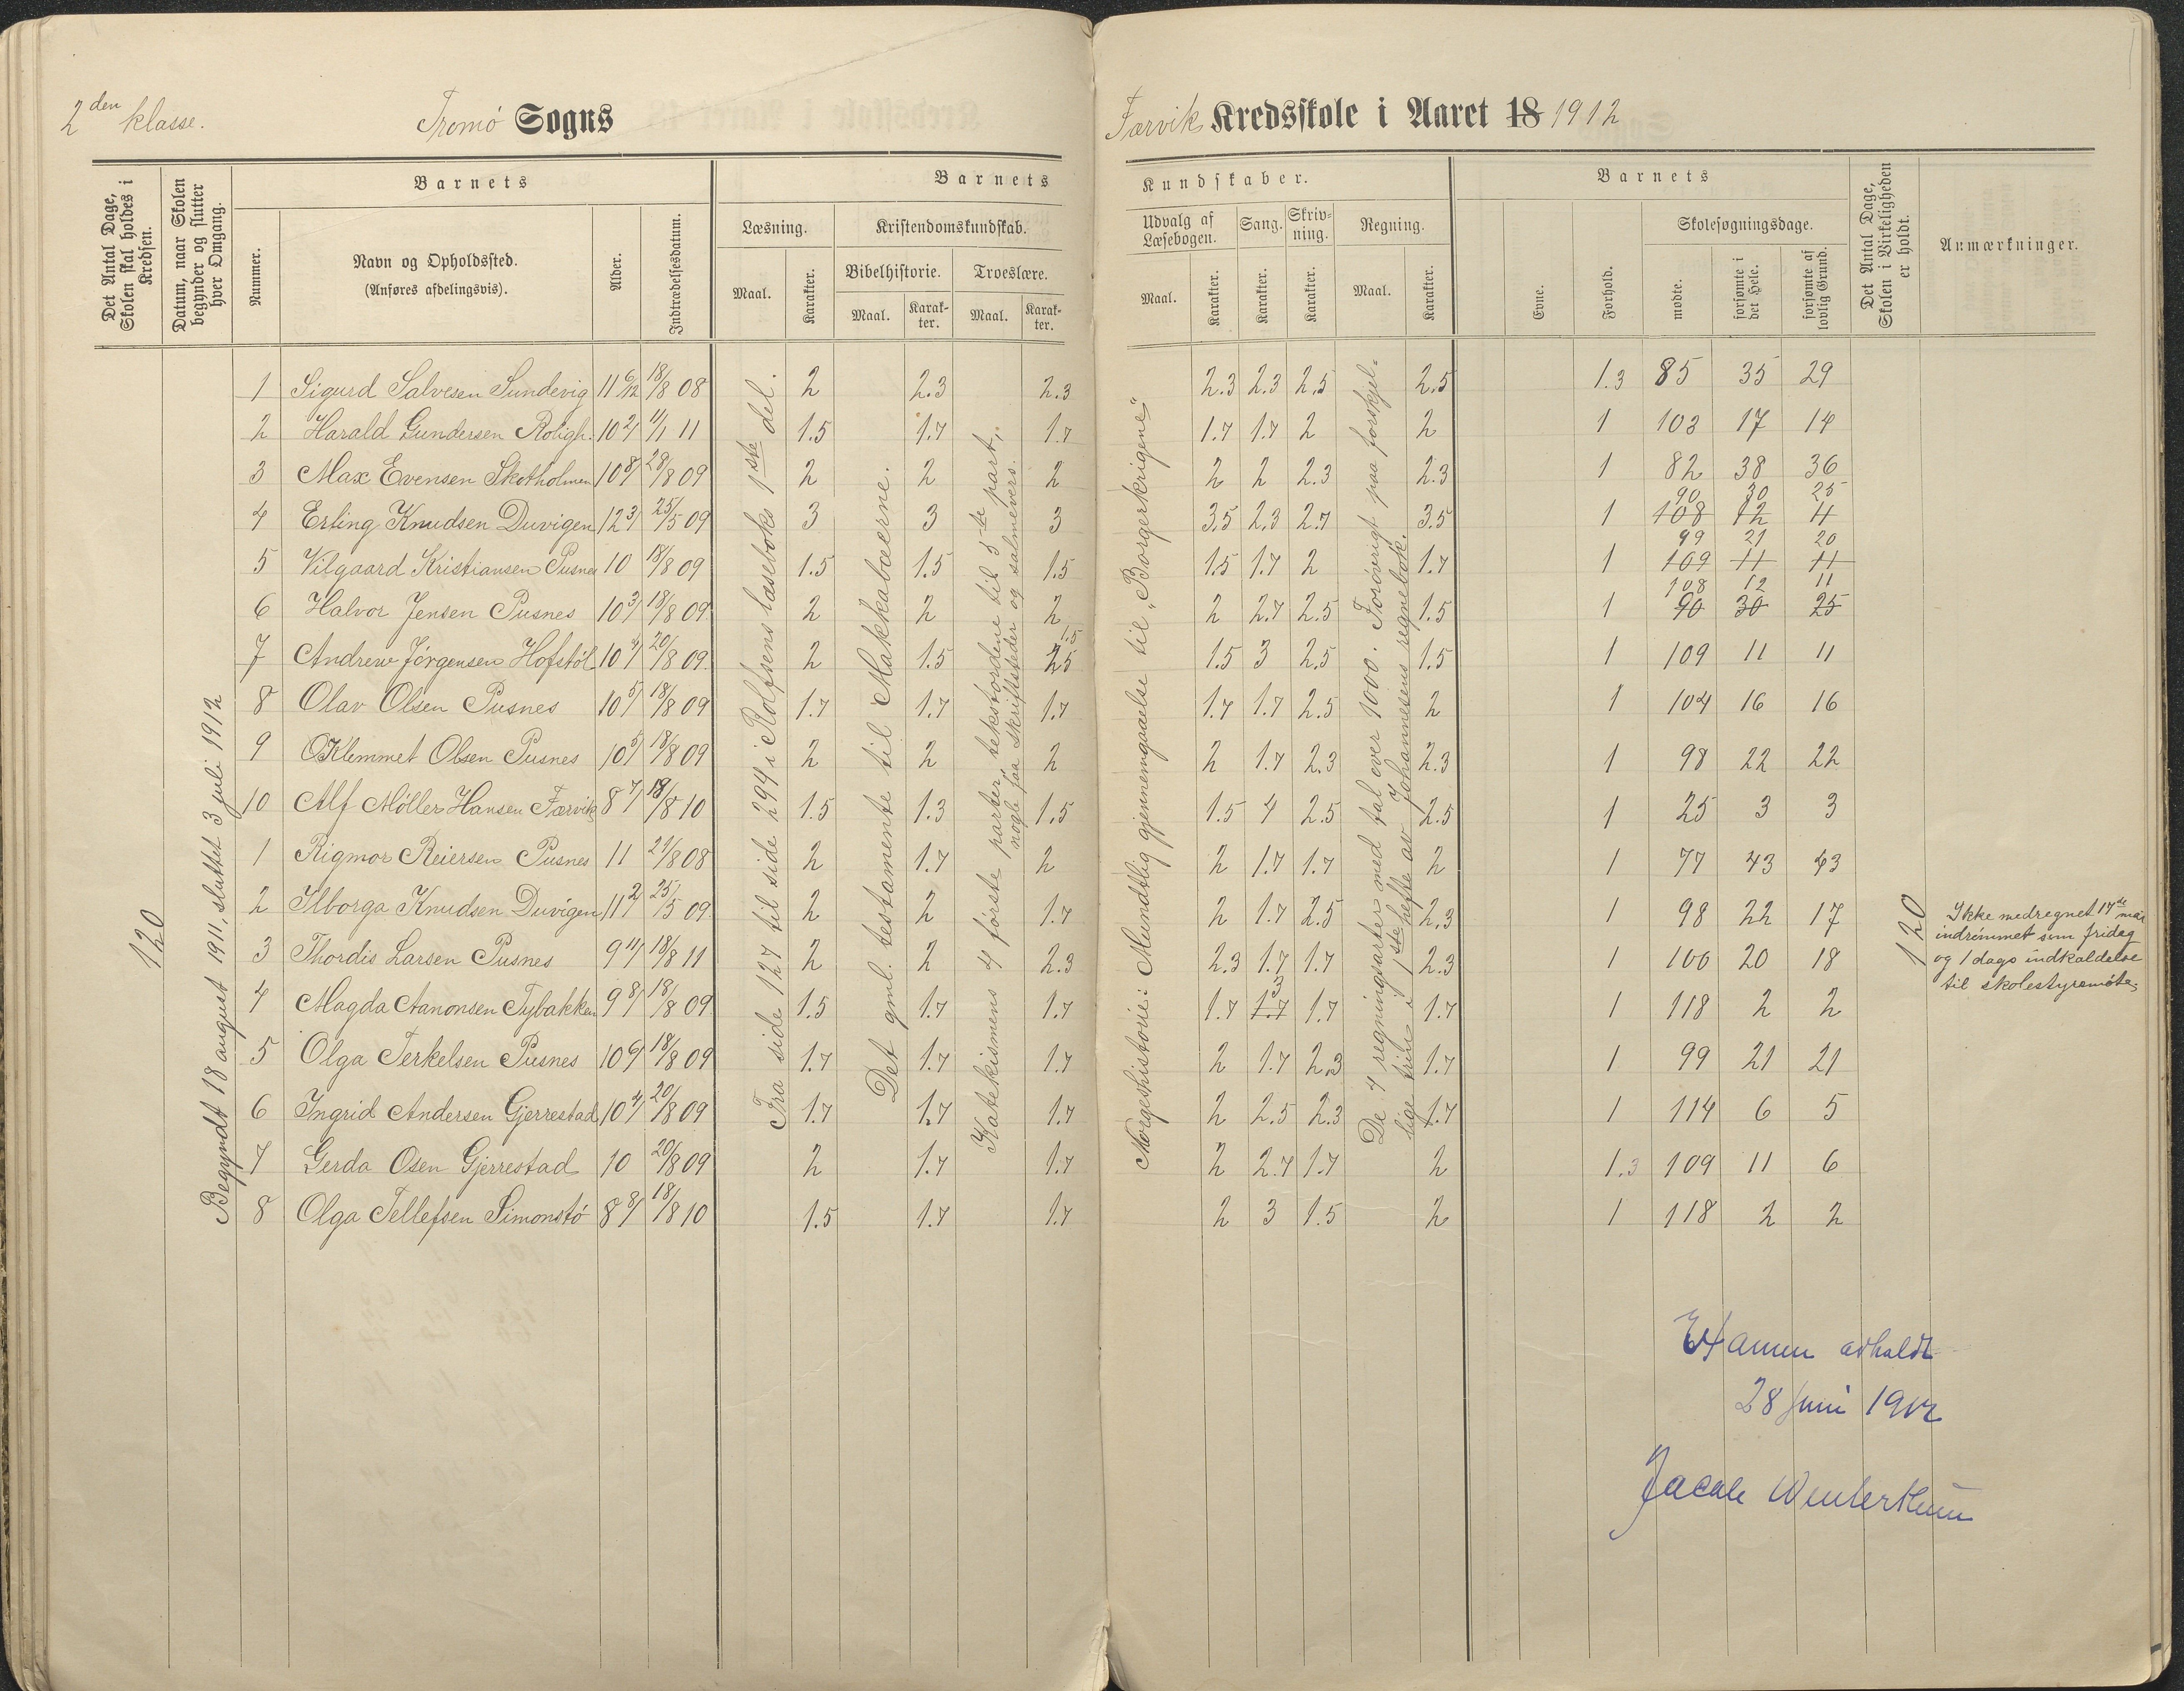 2den klasse.
Tromø Sogns
Færvik Kredsskole i Aaret 18 1912
Det Antal Dage, Skolen skal holdes i Kredsen.
Datum, naar Skolen begynder og slutter hver Omgang.
Barnets
Nummer.
Navn og Opholdssted.
(Anføres afdelingsvis).
Alder.
Indtrædelsesdatum.
Barnets
Læsning.
Maal.
Karakter.
Kristendomskundskab.
Bibelhistorie.
Maal.
Karakter.
Troeslære.
Maal.
Karakter.
Kundskaber.
Udvalg af Læsebogen.
Maal.
Karakter.
Sang.
Karakter.
Skrivning.
Karakter.
Regning.
Maal.
Karakter.
Barnets
Evne.
Forhold.
Skolesøgningsdage.
mødte.
forsømte i det Hele.
forsømte af lovlig Grund.
Det Antal Dage, Skolen i Virkeligheden er holdt.
Anmærkninger.
120
Begyndt 18 august 1911, sluttet 3 juli 1912
Fra side 127 til side 294 i Rolfsens læseboks 1ste del.
Det gml. testamente til Makkabæerne.
Katekismens 4 første parter, tekstordene til 5te part,
nogle faa skriftsteder og salmevers.
Norgeshistorie: Mundtlig gjennemgaaelse til "Borgerkrigene"
De 4 regningsarter med tal over 1000. Forøvrigt paa forskjel-
lige trin i 1ste hefte av Johannesens regnebok.
1 Sigurd Salvesen Sundevig 11 6/12 18/8 08 2 2.3 2.3 2.3 2.3 2.5 2.5 1.3 85 35 29
2 Harald Gundersen Roligh. 10 2/ 11/1 11 1.5 1.7 1.7 1.7 1.7 2 2 1 103 17 14
3 Max Evensen Skotholmen 10 8/ 28/8 09 2 2 2 2 2 2.3 2.3 1 82 38 36
90 30 25
4 Erling Knudsen Duvigen 12 3/ 25/5 09 3 3 3 3.5 2.3 2.7 3.5 1 108 12 11
99 21 20
5 Vilgaard Kristiansen Pusnes 10 18/8 09 1.5 1.5 1.5 1.5 1.7 2 1.7 1 109 11 11
108 12 11
6 Halvor Jensen Pusnes 10 3/ 18/8 09 2 2 2 2 2.7 2.5 1.5 1 90 30 25
1.5
7 Andrew Jørgensen Hofstøl 10 4/ 20/8 09 2 1.5 2.5 1.5 3 2.5 1.5 1 109 11 11
8 Olav Olsen Pusnes 10 5/ 18/8 09 1.7 1.7 1.7 1.7 1.7 2.5 2 1 104 16 16
9 Klemmet Olsen Pusnes 10 5/ 18/8 09 2 2 2 2 1.7 2.3 2.3 1 98 22 22
10 Alf Møller Hansen Færvik 8 7/ 18/8 10 1.5 1.3 1.5 1.5 4 2.5 2.5 1 25 3 3
1 Rigmor Reiersen Pusnes 11 21/8 08 2 1.7 2 2 1.7 1.7 2 1 77 43 43
2 Ilborga Knudsen Duvigen 11 2/ 25/5 09 2 2 1.7 2 1.7 2.5 2.3 1 98 22 17
3 Thordis Larsen Pusnes 9 4/ 18/8 11 2 2 2.3 2.3 1.7 1.7 2.3 1 100 20 18
4 Magda Aanonsen Tybakken 9 8/ 18/8 09 1.5 1.7 1.7 1.7 1.7 3 1.7 1.7 1 118 2 2
5 Olga Terkelsen Pusnes 10 6/ 18/8 09 1.7 1.7 1.7 2 1.7 2.3 1.7 1 99 21 21
6 Ingrid Andersen Gjerrestad 10 4/ 20/8 09 1.7 1.7 1.7 2 2.5 2.3 1.7 1 114 6 5
7 Gerda Osen Gjerrestad 10 20/8 09 2 1.7 1.7 2 2.7 1.7 2 1.3 109 11 6
8 Olga Tellefsen Simonstø 8 8/ 18/8 10 1.5 1.7 1.7 2 3 1.5 2 1 118 2 2
120
Ikke medregnet 17de mai
indrømmet som fridag
og 1 dags indkaldelse
til skolestyremøte.
Examen avholdt
28 Juni 1912
Jacob